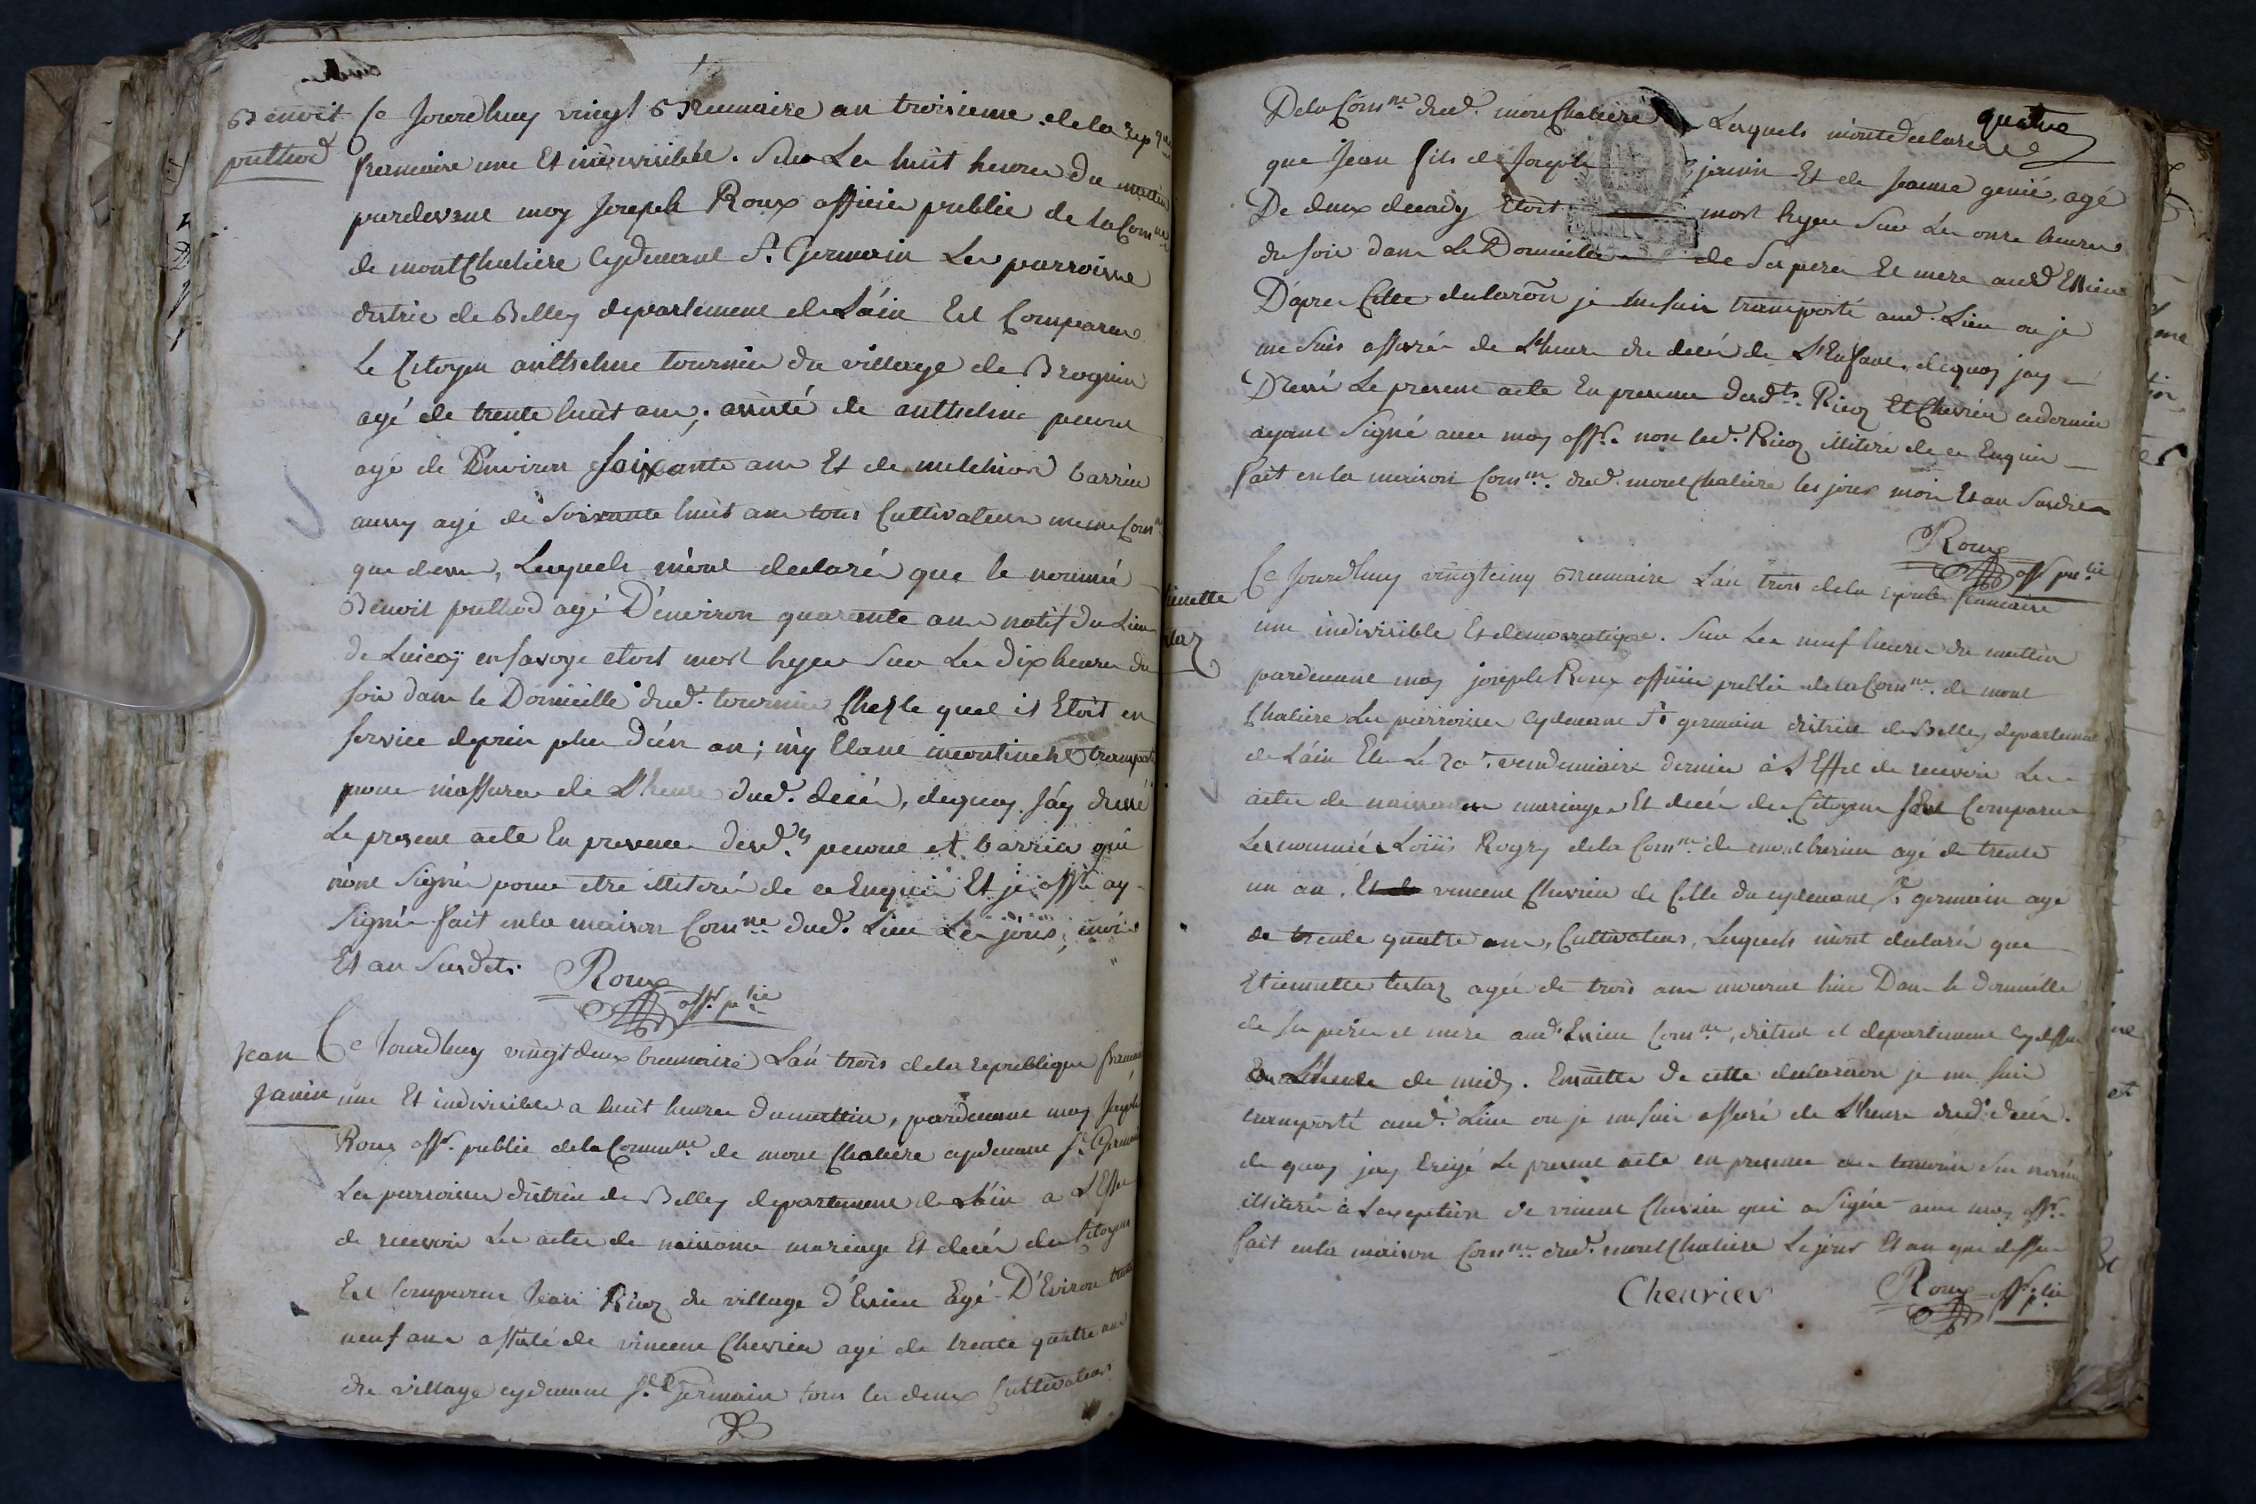 Benoit
puthod
Ce Jourdhuy vingt Brumaire an troisieme de la rep que
francaise une Et indivisible. Sur Les huit heures du mattin
pardevant moy Joseph Roux officier public de la Comne
de montChaliere cydevant St. Germain Les parroisse
district de Belley departement de L'ain Est Comparu
Le Citoyen anthelme tournier du village de Brognin
agé de trente huit ans, assisté de anthelme
agé de D'environ soixante ans Et de melchior barrin
aussy agé de soixante huit ans tous Cultivateurs meme Comne
que dessus, Lesquels m'ont declaré que le nommé
Benoit puthod agé D'environ quarante ans natif du Lieu
de en savoye etoit mort hyer Sur Les dix heures du
soir dans le Domicille dud. tournier Chez le quel il Etoit en
service depuis plus d'un an; m'y Etant incontinent transporté
pour m'assurer de L'heure dud. decés, dequoy J'ay dressé
Le present acte En presence desd.ts et barrin qui
n'ont Signés pour etre illiterés de ce Enquis Et je offr. ay
Signé fait en la maison Comne dud. Lieu Les jours, mois
Et an Susdits.
Roux
offr. plic
Jean
Janin
Ce Jourdhuy vingtdeux brumaire L'an trois de la republique francaise
une Et indivisible a huit heures du mattin, pardevant moy Joseph
Roux offr. public de la Commne de mont Chaliere cydevant St. Germain
Les parroisses district de Belley departement de L'ain a L'Effet
de recevoir Les actes de naissance mariage Et decés des Citoyens
Est Comparu Jean Ricoz du village d'Essieu Agé D'Eviron trente
neuf ans assisté de vincent Chevrier agé de trente quatre ans
du village cydevant St. Germain tous les deux Cultivateurs
quatre
De la Comne dud. montChaliere Lesquels m'ont declaré
que Jean fils de Joseph janin Et de Jeanne genié, agé
De deux decady Etoit mort hyer Sur Les onze heures
du soir dans Le Domicille de Ses pere Et mere aud. Essieu
D'apres Cette declaron je me suis transporté aud. Lieu ou je
me suis assuré de L'heure du decés de L'Enfant, dequoy jay
Dressé Le present acte En presence desd.ts Ricoz Et Chevrier cedernier
ayant Signé avec moy offr. non led. Ricoz illiteré de ce Enquis
fait en la maison Comne dud. montChaliere les jours mois Et an Susdits
Roux
off pu.lic
Ce Jourdhuy vingtcinq Brumaire L'an trois de la repub. francaise
une indivisible Et democratique. Sur Les neuf heures du mattin
pardevant moy joseph Roux officier public de la Comne de mont
Chaliere Les parroisses cydevant St germain district de Belley departement
de L'ain Elu Le vendemiaire dernier à L'Effet de recevoir Les
actes de naissances mariages Et decés des Citoyens sont Comparus
Les nommés Loüis Rogry de la Comne de agé de trente
un an, Et vincent Chevrier de Celle du cydevant St germain agé
de trente quatre ans, Cultivateurs, Lesquels m'ont declaré que
Etiennette tertaz agée de trois ans mourut hier Dans le domicille
de Ses pere et mere aud. Essieu Comne, district et departement cydessus
L'heure de midy. Ensuitte de cette declaraon je me suis
transporté aud. Lieu ou je me suis assuré de L'heure dud. decés.
de quoy jay Erigé Le present acte en presence des temoins
illiterés à L'exeption de vincent Chevrier qui a Signé avec moy offr.
fait en la maison Comne dud. montChaliere Le jour Et an que dessus
Chevrier
Roux
offr. plic